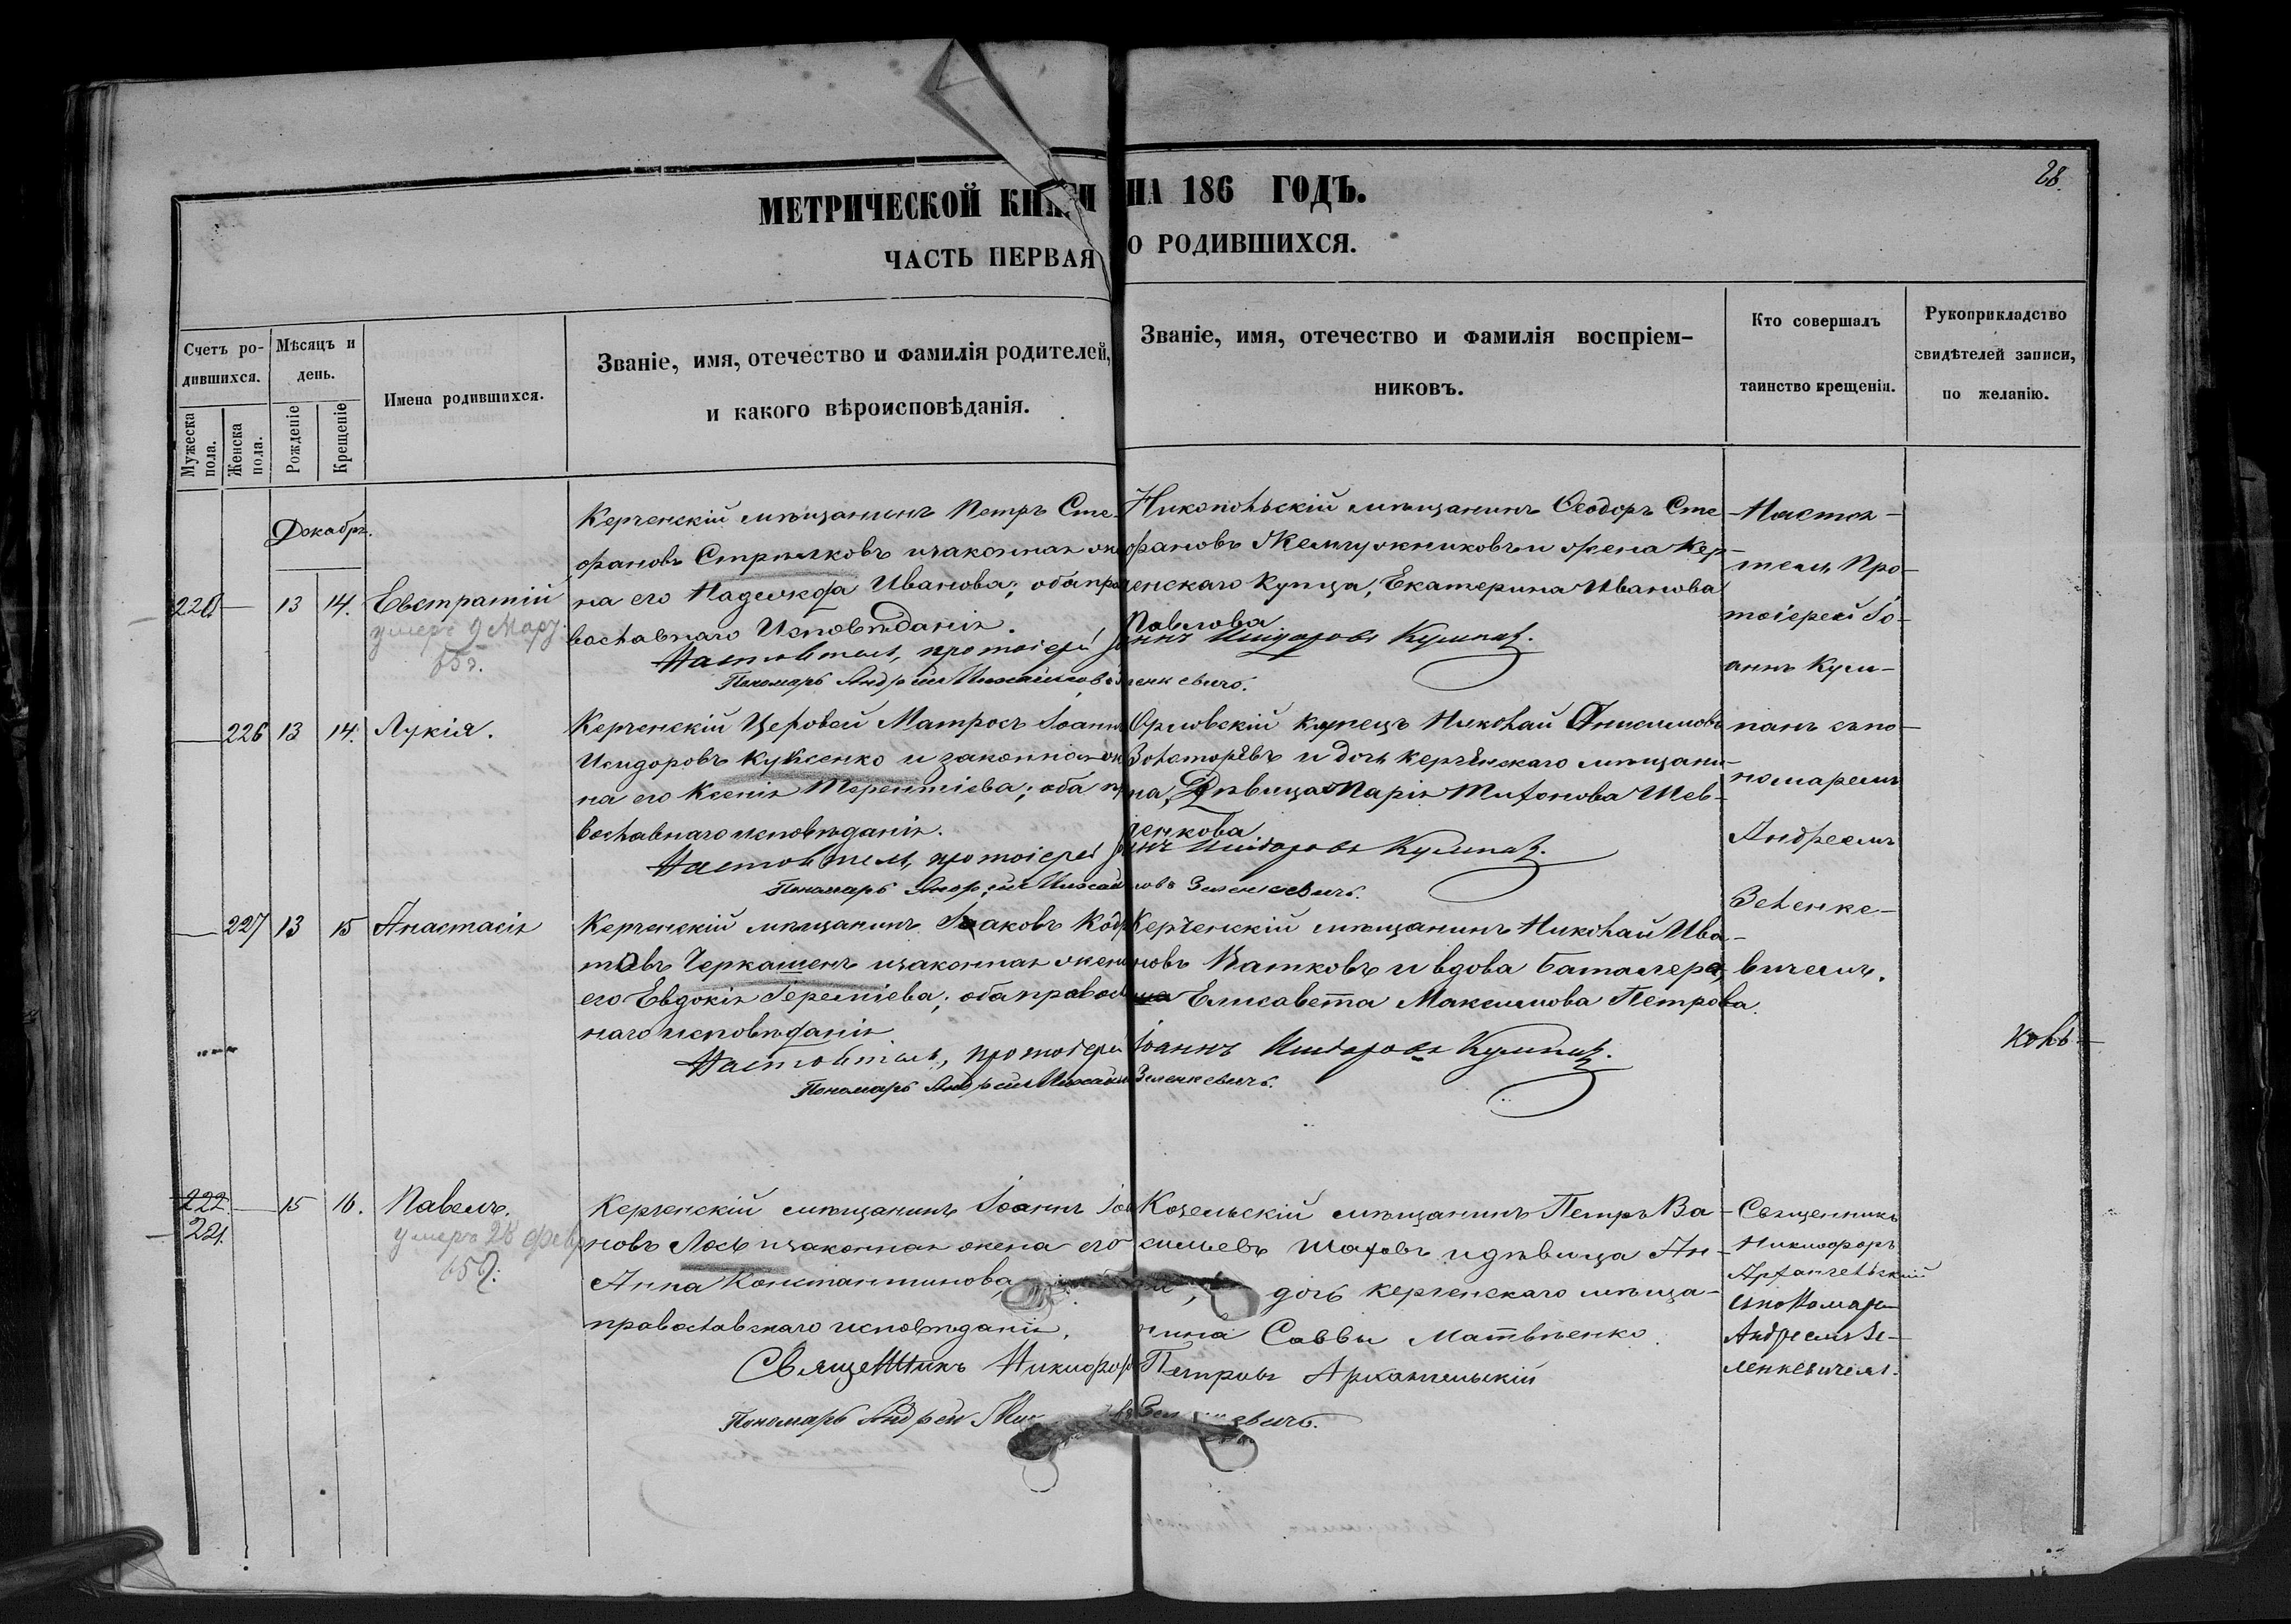 28.
МЕТРИЧЕСКОЙ КНИГИ НА 186 ГОДЪ.
ЧАСТЬ ПЕРВАЯ О РОДИВШИХСЯ.
Счетъ ро-
дившихся.
Мужеска пола.
Женска пола.
Мѣсяцъ и
день.
Рожденіе
Крещеніе
Имена родившихся.
Званіе, имя, отечество и фамилія родителей,
и какого вѣроисповѣданія.
Званіе, имя, отечество и фамилія воспріем-
никовъ.
Кто совершалъ
таинство крещенія.
Рукоприкладство
свидѣтелей записи,
по желанію.
Декабрь.
220 — 13 14. Евстратій
умеръ 9 Март.
Керченскій мѣщанинъ Петръ Сте-
фановъ Стрѣлковъ и законная же
на его Надежда Иванова; оба пра
вославнаго Исповѣданія.
Никопольскій мѣщанинъ Ѳеодоръ Сте-
фановъ Жемчужниковъ и жена Кер-
ченскаго Купца, Екатерина Иванова
Павлова
Настоятель, протоіерей Іоаннъ Исидоровъ Кумпанъ.
Пономарь Андрей Михайловъ Зеленкевичъ.
Настоя-
тель Про-
тоіерей Іо-
аннъ Кум-
панъ съ по-
номаремъ
Андреемъ
Зеленке-
вичемъ.
— 226 13 14. Лукія.
Керченскій Цеховой Матросъ Іоаннъ
Исидоровъ Куксенко и законная же
на его Ксенія Терентіева; оба пра
вославнаго исповѣданія.
Орловскій купецъ Николай Анисимовъ
Золоторёвъ и дочь керченскаго мѣщани-
на, Дѣвица Марія Тихонова Шев-
ченкова
Настоятель, протоіерей Іоаннъ Исидоровъ Кумпанъ.
Пономарь Андрей Михайловъ Зеленкевичъ.
— 227 13 15 Анастасія
Керченскій мѣщанинъ Іаковъ Код
товъ Черкашенъ и законная жена
его Евдокія Іереміева; оба правосл
наго исповѣданія
Керченскій мѣщанинъ Николай Ива-
новъ Ватковъ и вдова Баталера,
Елисавета Максимова Петрова.
Настоятель, протоіерей Іоаннъ Исидоровъ Кумпанъ.
Пономарь Андрей Михайл Зеленкевичъ.
коль-
222. — 15 16. Павелъ.
221.
умеръ 28 февр
Керченскій мѣщанинъ Іоаннъ Іоа
новъ Лось и законная жена его
Анна Константинова,
православнаго исповѣданія.
Козельскій мѣщанинъ Петръ Ва-
сильевъ Шаховъ и дѣвица Ан-
дочь керченскаго мѣща-
нина Саввы Матвѣенко.
Священникъ Никифоръ Петровъ Архангельскій
Пономарь Андрей Зеленкевичъ.
Священникъ
Никифоръ
Архангельскій
съ пономаремъ
Андреемъ Зе-
ленкевичемъ.